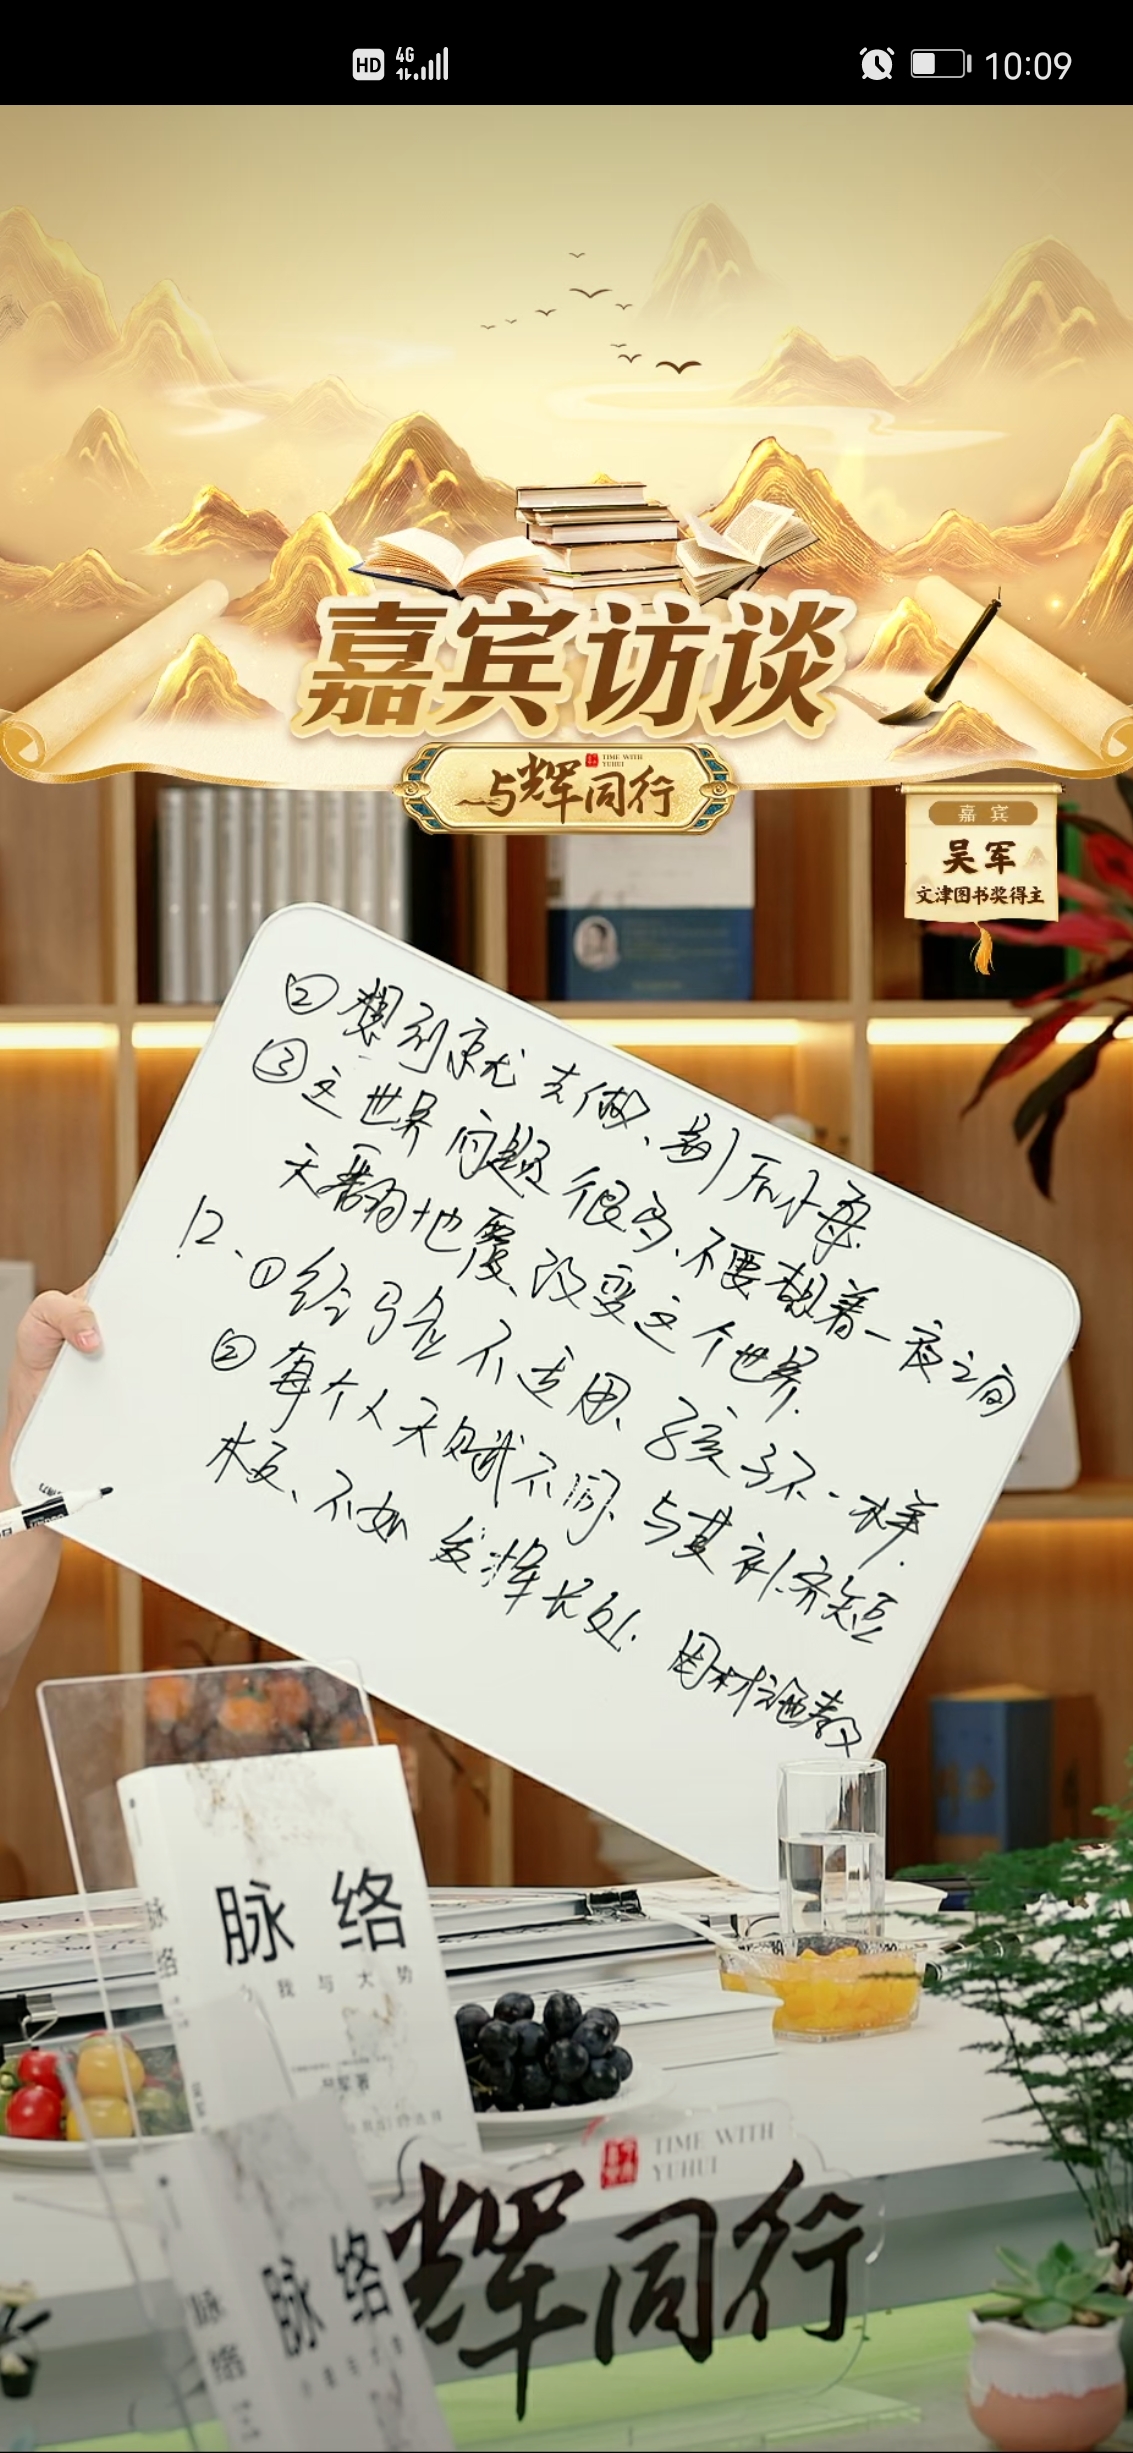 HD 4G 10:09
嘉宾访谈
与辉同行
TIME WITH
YUHUI
嘉宾
吴军
文津图书奖得主
②想到就去做、别后悔.
③这世界问题很多、不要想着一夜之间
天翻地覆、改变这个世界.
12、①经验不适用、孩子不一样.
②每个人天赋不同、与其补齐短
板、不如发挥长处. 因材施教
脉络
我与大势
吴军著
脉络
TIME WITH
YUHUI
辉同行
脉络
脉络